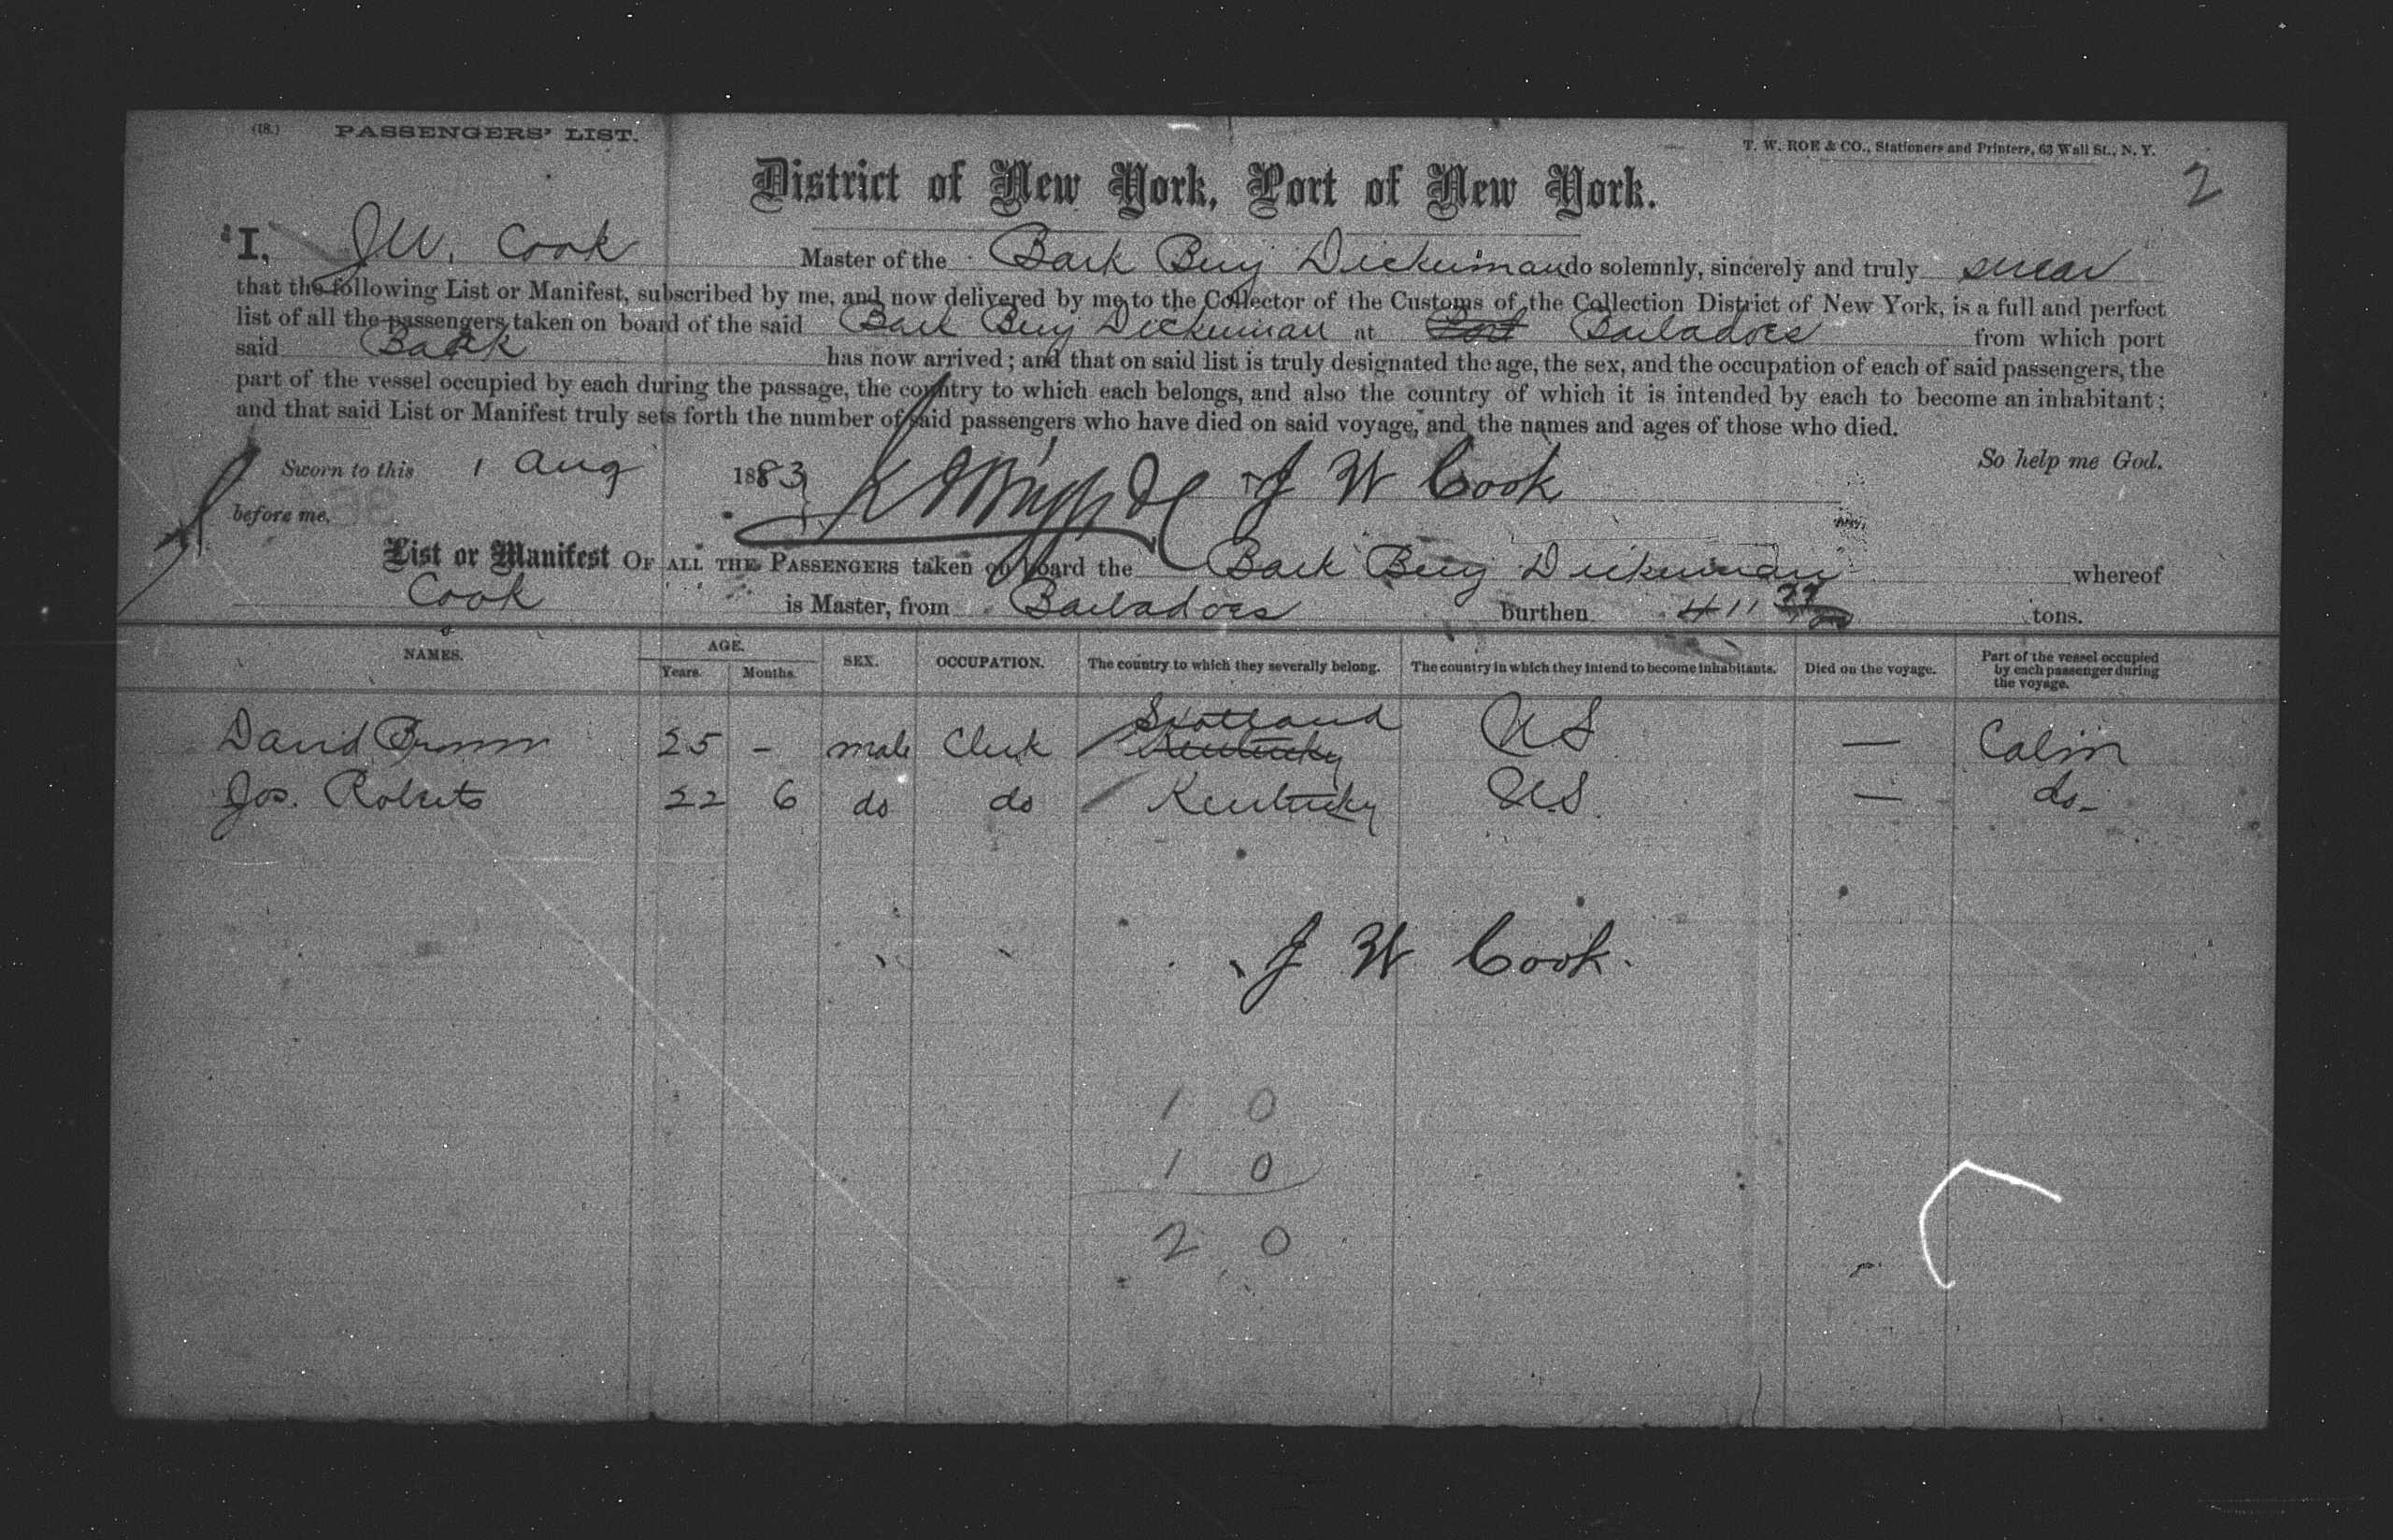 (18.) PASSENGERS' LIST.
T. W. ROE & CO., Stationers and Printers, 63 Wall St., N. Y.
2
District of New York, Port of New York.
I, J W. Cook Master of the Bark Benj Dickerman do solemnly, sincerely and truly swear
that the following List or Manifest, subscribed by me, and now delivered by me to the Collector of the Customs of the Collection District of New York, is a full and perfect
list of all the passengers taken on board of the said Bark Benj Dickerman at Port Barbadoes from which port
said Bark has now arrived; and that on said list is truly designated the age, the sex, and the occupation of each of said passengers, the
part of the vessel occupied by each during the passage, the country to which each belongs, and also the country of which it is intended by each to become an inhabitant;
and that said List or Manifest truly sets forth the number of said passengers who have died on said voyage, and the names and ages of those who died.
So help me God.
Sworn to this 1 Aug 1883 J W Cook
before me,
List or Manifest OF ALL THE PASSENGERS taken on board the Bark Benj Dickerman whereof
Cook is Master, from Barbadoes burthen 411 tons.
NAMES. AGE. Years. Months. SEX. OCCUPATION. The country to which they severally belong. The country in which they intend to become inhabitants. Died on the voyage. Part of the vessel occupied by each passenger during the voyage.
David Brown 25 - male Clerk Scotland Kentucky US — Cabin
Jos. Roberts 22 6 do do Kentucky U.S. — do-
J W Cook.
1 0
1 0
2 0